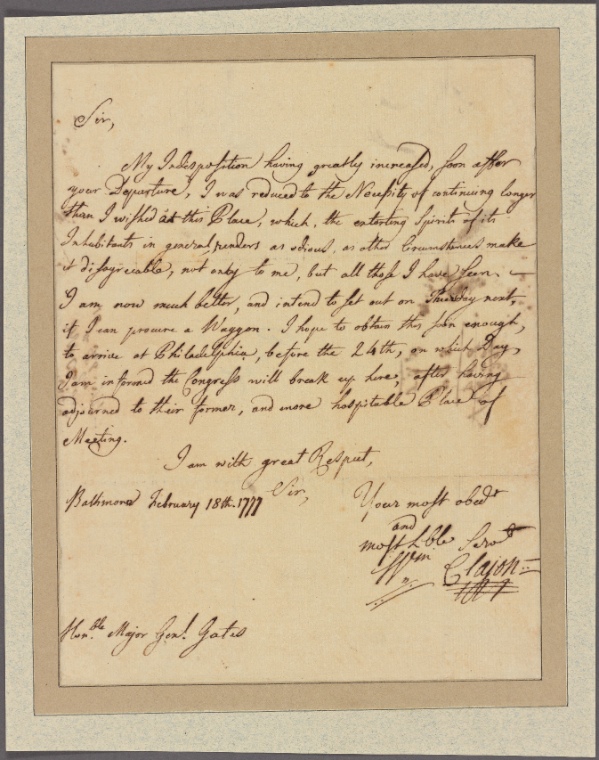 Sir,
My Indisposition having greatly increased, soon after
your Departure, I was reduced to the Necessity of continuing longer
than I wished at this Place, which, the extorting Spirit of its
Inhabitants in general, renders as odious, as other Circumstances make
it disagreeable, not only to me, but all those I have seen. —
I am now much better, and intend to set out on next,
if I can procure a Waggon. I hope to obtain this soon enough,
to arrive at Philadelphia, before the 24th, on which Day,
I am informed the Congress will break up here, after having
adjourned to their former, and more hospitable Place of
Meeting.
I am with great Respect,
Sir,
Baltimore February 18th. 1777
Your most obedt
and
most hble Servt
Wm Clajon
Honble Major Genl. Gates